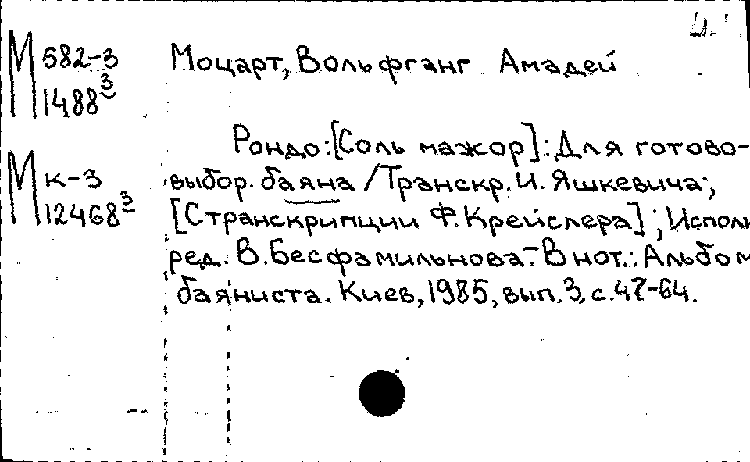 М 682-3
1488³
Моцарт, Вольфганг Амадей
Рондо: [Соль мажор]: Для готово-
М к-3
12468³
выбор. баяна / Транскр. И. Яшкевича;
[Странскрипции Ф. Крейслера]; Исполн
ред. В. Бесфамильнова.- В нот.: Альбом
баяниста. Киев, 1985, вып. 3, с. 47-64.